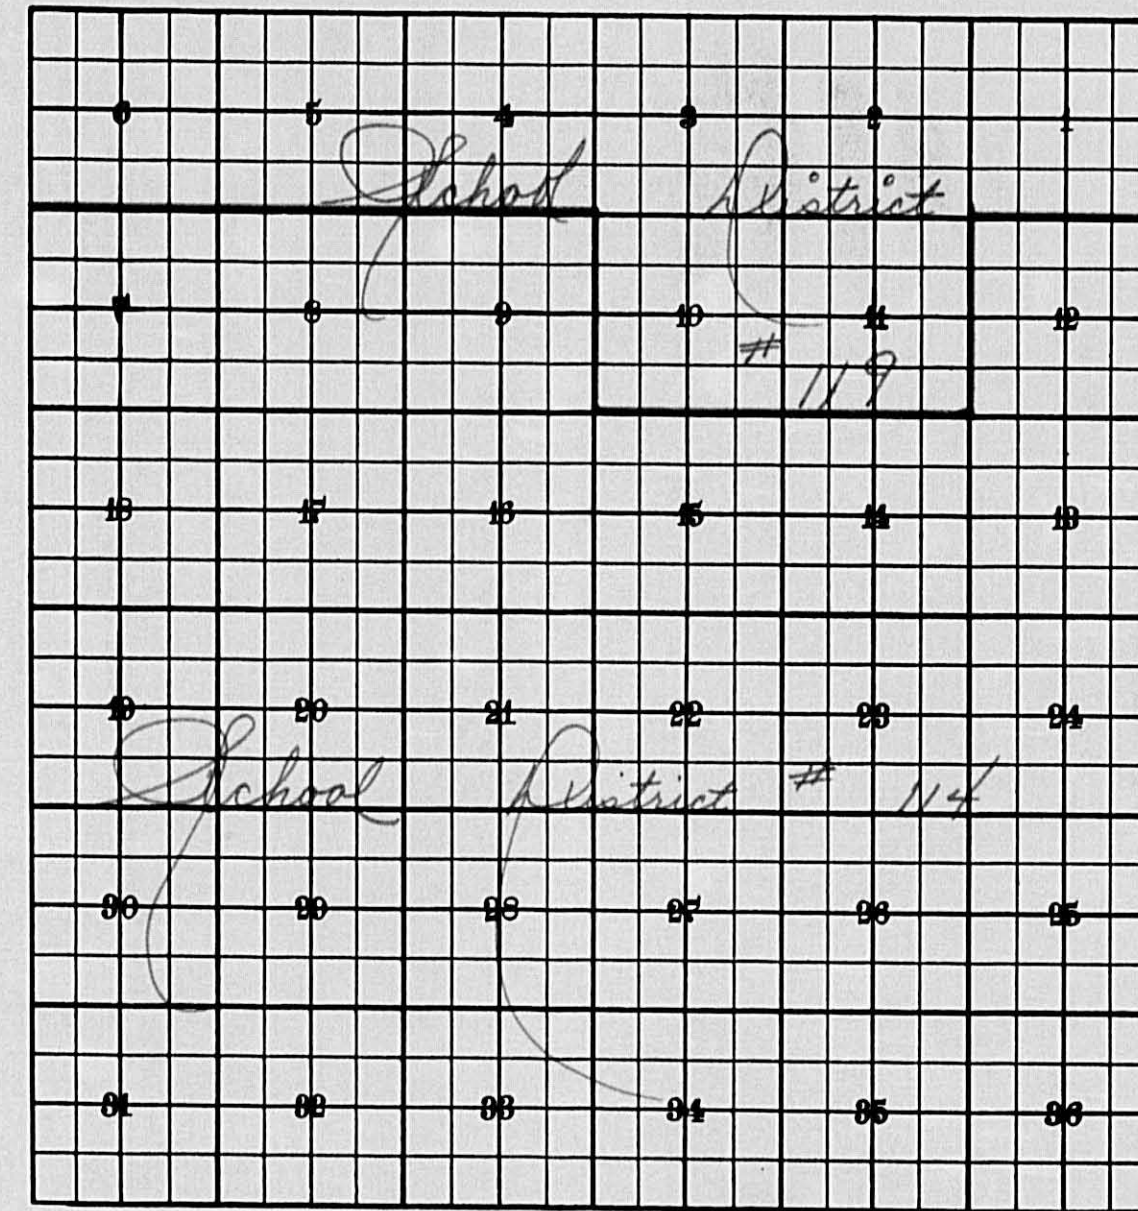 6 5 4 3 2 1
School District
7 8 9 10 11 12
# 119
18 17 16 15 14 13
19 20 21 22 23 24
School District # 114
30 29 28 27 26 25
31 32 33 34 35 36